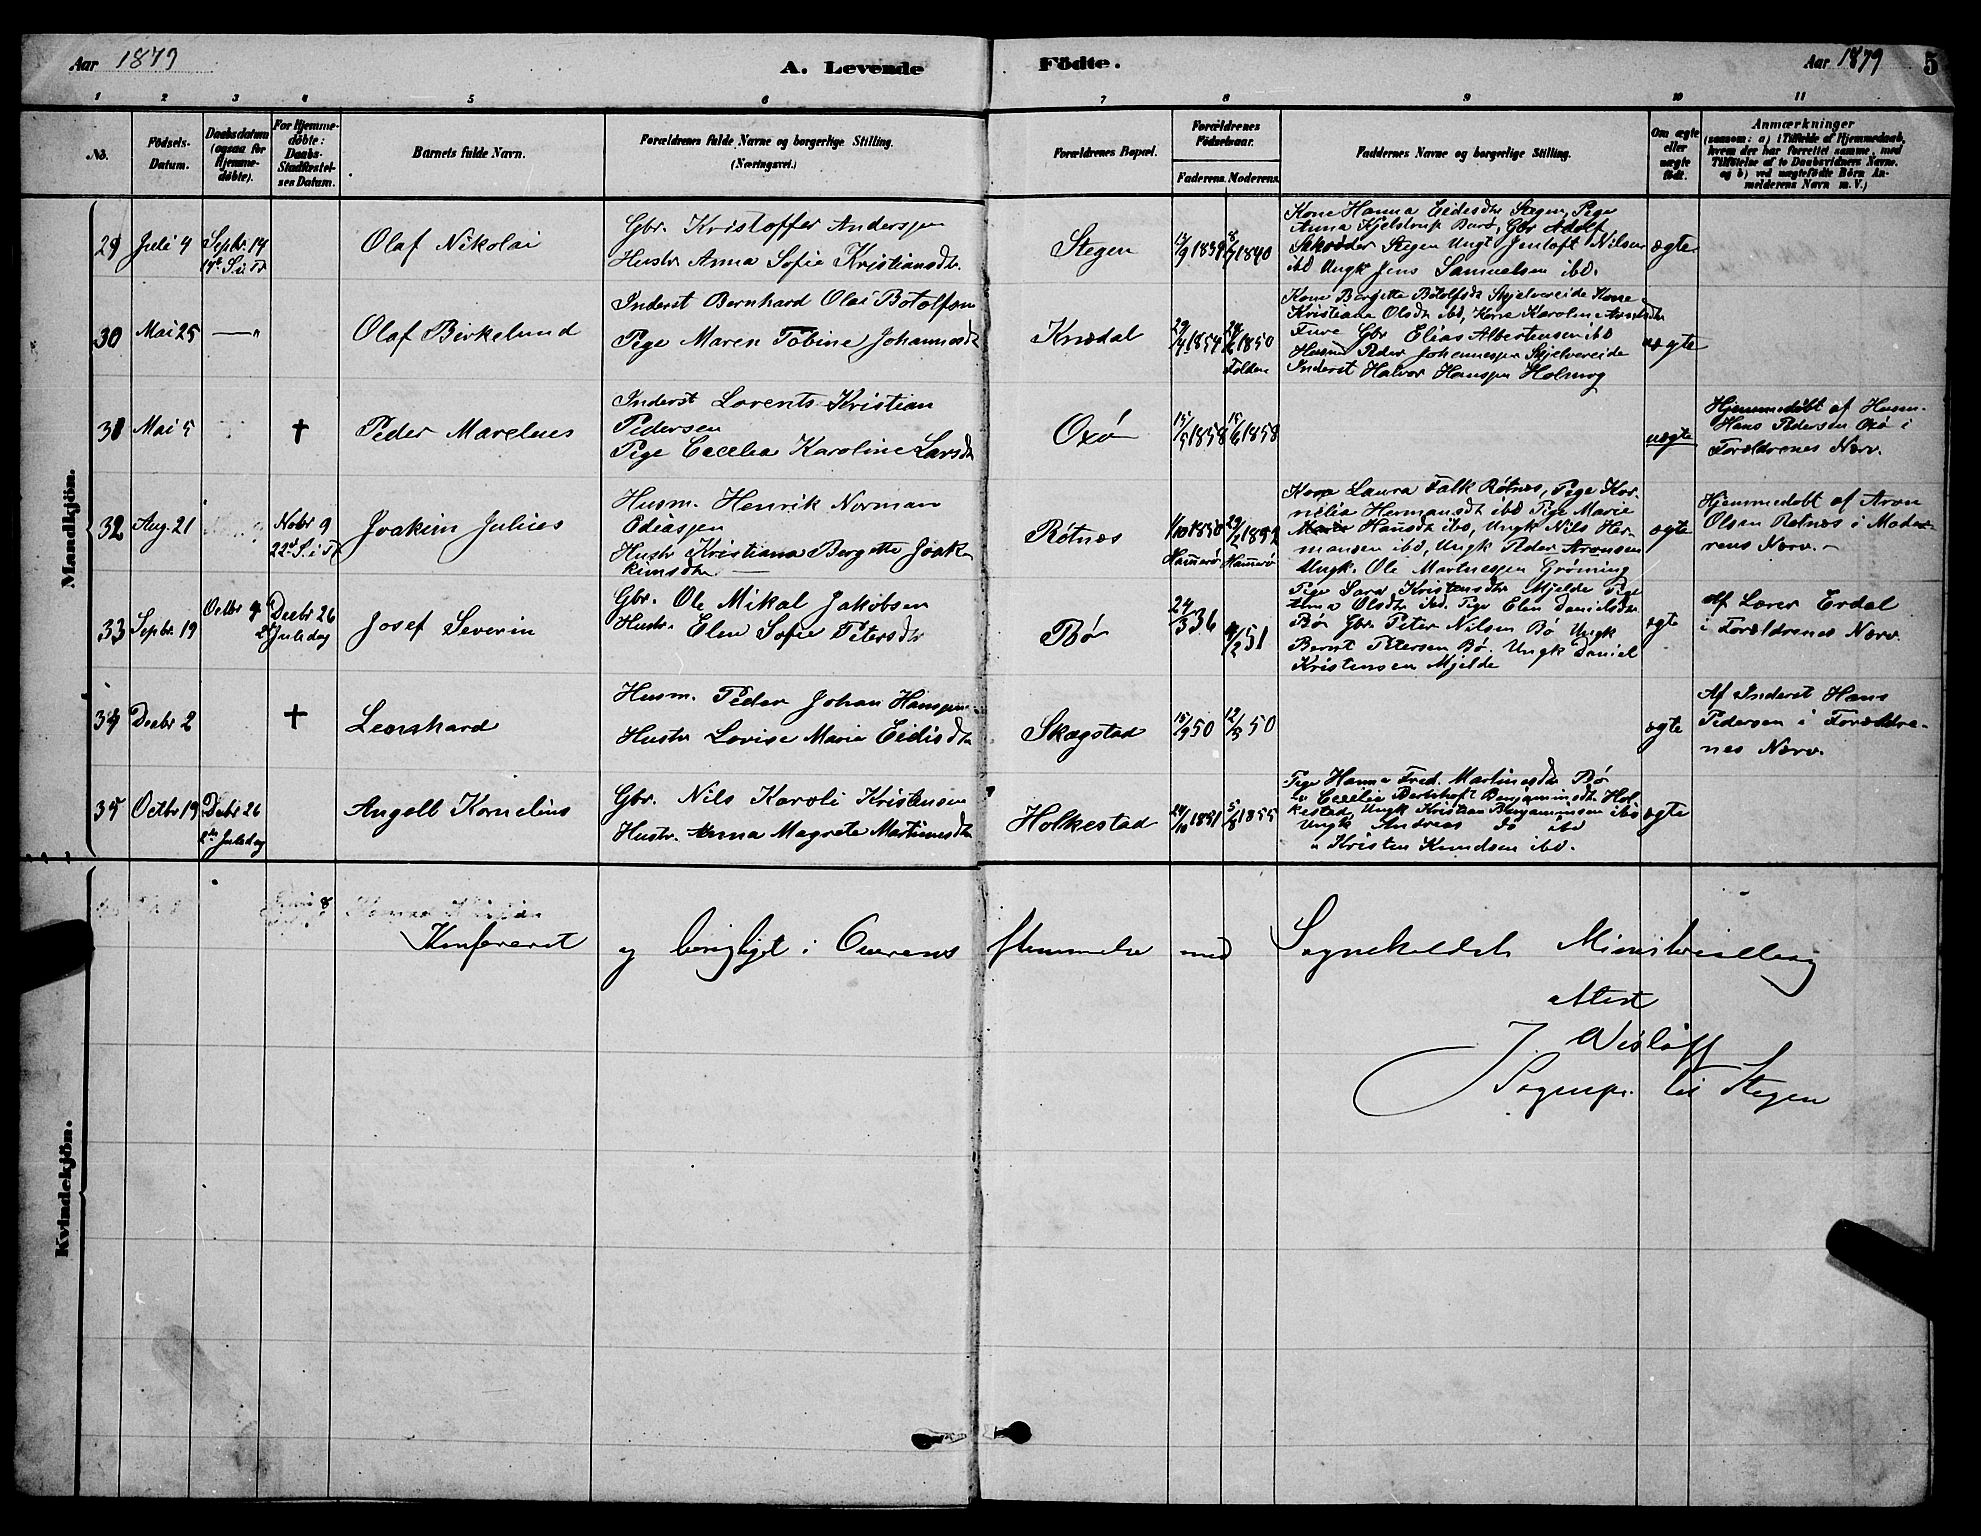 Aar 1879
A. Levende
Födte.
Aar 1879
5
1 2 3 4 5 6 7 8 9 10 11
No.
Födsels-
Datum.
Daabsdatum
(ogsaa for
Hjemme-
döbte).
For Hjemme-
döbte:
Daabs-
Stadfæstel-
ses Datum.
Barnets fulde Navn.
Forældrenes fulde Navne og borgerlige Stilling.
(Næringsvei.)
Forældrenes Bopæl.
Forældrenes
Födselsaar.
Faderens. Moderens.
Faddernes Navne og borgerlige Stilling.
Om ægte
eller
uægte
födt.
Anmærkninger
(saasom: a) i Tilfælde af Hjemmedaab,
hvem der har forrettet samme, med
Tilföielse af to Daabsvidners Navne,
og b) ved uægtefödte Börn An-
melderens Navn m. V.)
Mandkjön.
29 Juli 4
Septbr. 14
14de S. i Tr
Olaf Nikolai
Gbr. Kristoffer Anderssen
Hustr Anna Sofie Kristiansdtr.
Stegen
1839
8/7 1840
Kone Hanna Eidesdtr Stegen, Pige
Anna Kjelstrup Burø, Gbr Adolf
Schrøder Stegen Ungk Jentoft Nilsen
ibd Ungk Jens Samuelsen ibd.
ægte
30 Mai 25 — "
Olaf Birkelund
Inderst Bernhard Olai Botolfsen
Pige Maren Tobine Johannesdtr
Knædal
1854
1850
Folden
Kone Bergette Botolfsdtr Skjelvereide Kone
Kristiane Olsdtr ibd, Kone Karoline
Fure Gbr Elias Albertsen ibd
Husm Peder Johannessen Skjelvereide
Inderst Halvor Hanssen Holmag
uægte
31 Mai 5 †
Peder Marelius
Inderst Lorents Kristian
Pedersen
Pige Cecelia Karoline Larsdtr
Oxø
15/5 1858
15/6 1858
uægte
Hjemmedøbt af Husm.
Hans Pedersen Oxø i
Forældrenes Nærv.
32 Aug. 21
Nobr 9
22de S. i Tr
Joakim Julius
Husm. Henrik Norman
Odiassen
Hustr Kristiana Bergette Joak-
kimsdtr —
Røtnes
1/10 1850
Hamerø
Hamerø
Kone Laura Falk Røtnes, Pige Kor-
nelia Hermansdtr ibd Pige Marie
Hansdtr ibd, Ungk Nils Her-
mansen ibd, Ungk Peder Aronsen
Ungk. Ole Martinessen Grøning
ægte
Hjemmedøbt af Aron
Olsen Røtnes i Mode-
rens Nærv. —
33 Septbr. 19
Octbr 9
Decbr 26
2 Juledag
Josef Severin
Gbr. Ole Mikal Jakobsen
Hustr. Elen Sofie Petersdtr
Bø
24/3 36
51
Pige Sara Kristensdtr Mjelde Pige
Anna Olsdtr ibd. Pige Elen Danielsdtr
Bø Gbr. Peter Nilsen Bø Ungk
Bernt Petersen Bø. Ungk Daniel
Kristensen Mjelde
ægte
Af Lærer Erdal
i Forældrenes Nærv.
34 Decbr 2 †
Leonhard
Husm. Peder Johan Hanssen
Hustr Lovise Marie Eidisdtr
Skagstad
50
50
ægte
Af Inderst Hans
Pedersen i Forældre-
nes Nærv.
35 Octbr 19
Decbr 26
2den Juledag
Angell Kornelius
Gbr. Nils Karoli Kristensen
Hustr. Anna Magrete Martinesdtr
Holkestad
1851
5/8 1855
Pige Hanna Fred. Martinesdtr Bø
" Cecelia Benjaminsdtr Hol-
kestad, Ungk Kristian Benjaminsen ibd
Ungk Andreas do ibd
" Kristen Knudsen ibd.
ægte
Kvindekjön.
Konfereret og berigtiget i Overens stemmelse med Sognekaldets Ministerialbog
Attest
J. Wisløff
Sognepr. til Stegen